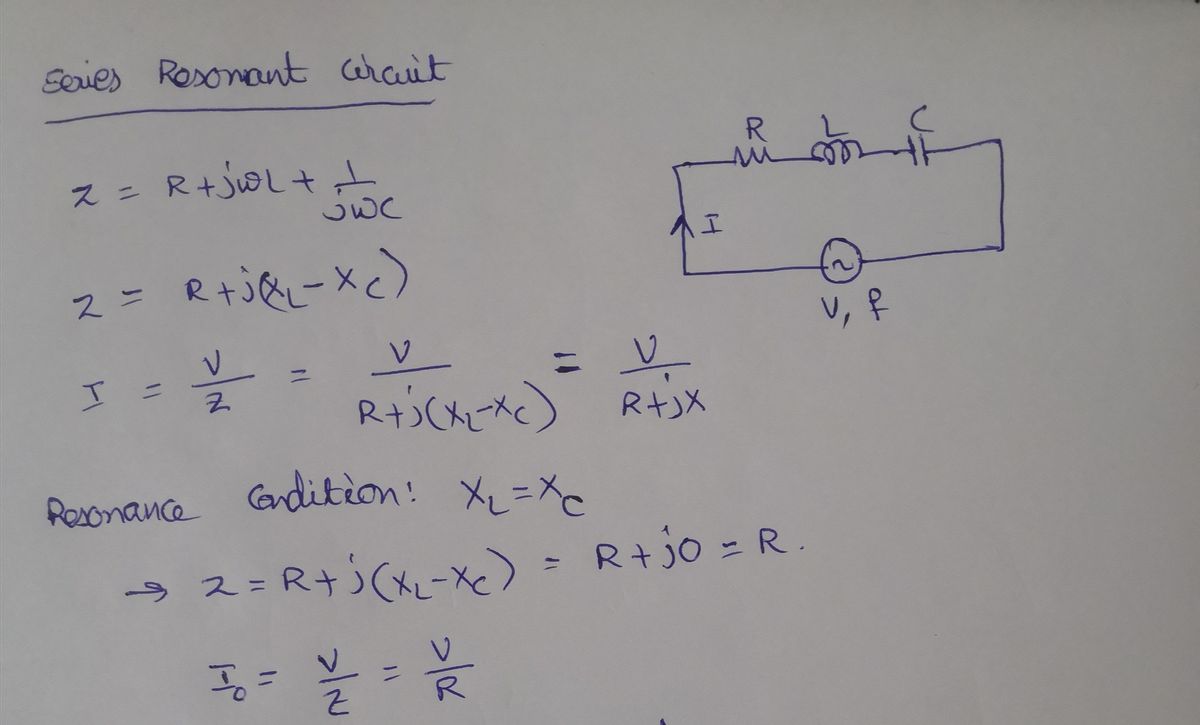 Series Resonant Circuit
Z = R + jωL + 1/jωC
Z = R + j(XL - XC)
I = V/Z = V/R+j(XL-XC) = V/R+jX
Resonance Condition: XL = XC
→ Z = R + j(XL-XC) = R + j0 = R.
I0 = V/Z = V/R
R L C
I
V, f